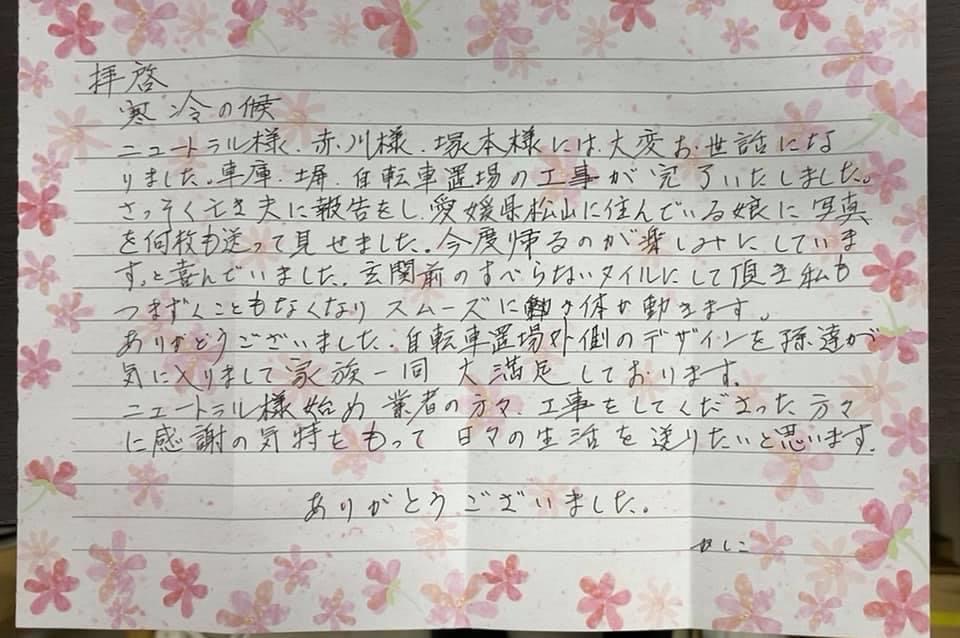 拝啓
寒冷の候
ニュートラル様、赤川様、塚本様には、大変お世話にな
りました。車庫、塀、自転車置場の工事が完了いたしました。
さっそく亡き夫に報告をし、愛媛県松山に住んでいる娘に写真
を何枚も送って見せました。今度帰るのが楽しみにしていま
す。と喜んでいました。玄関前のすべらないタイルにして頂き私も
つまずくこともなくなりスムーズに体が動きます。
ありがとうございました。自転車置場外側のデザインを孫達が
気に入りまして家族一同 大満足しております。
ニュートラル様始め 業者の方々、工事をしてくださった方々
に感謝の気持をもって 日々の生活を送りたいと思います。
ありがとうございました。
かしこ